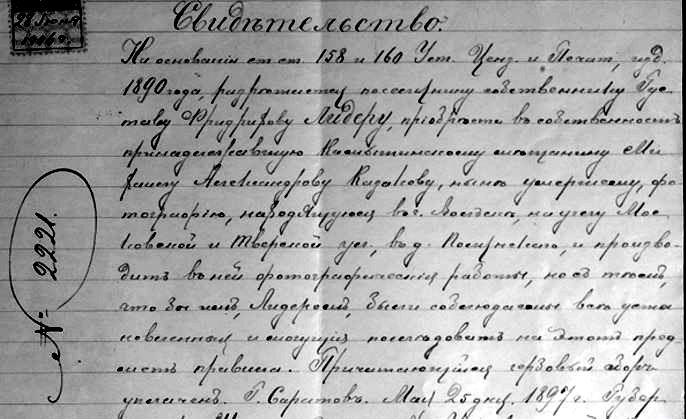 Свидѣтельство.
На основаніи ст. ст. 158 и 160 Уст. Ценз. и Печат., изд.
1890 года, разрѣшается поселянину собственнику Гус-
таву Фридрихову Лидеру, пріобрѣсти въ собственность
принадлежавшую Камышинскому мѣщанину Ми
хаилу Александрову Казакову, нынѣ умершему, фо-
тографію, находящуюся въ г. на углу Мос-
ковской и Тверской ул., въ д. и произво-
дить въ ней фотографическія работы, но съ тѣмъ,
что бы имъ, Лидеромъ, были соблюдаемы всѣ уста
новленныя и могущія послѣдовать на этотъ пред-
метъ правила. Причитающійся гербовый сборъ
уплаченъ. Г. Саратовъ. Мая 25 дня, 1897 г. Губер
№ 2221.